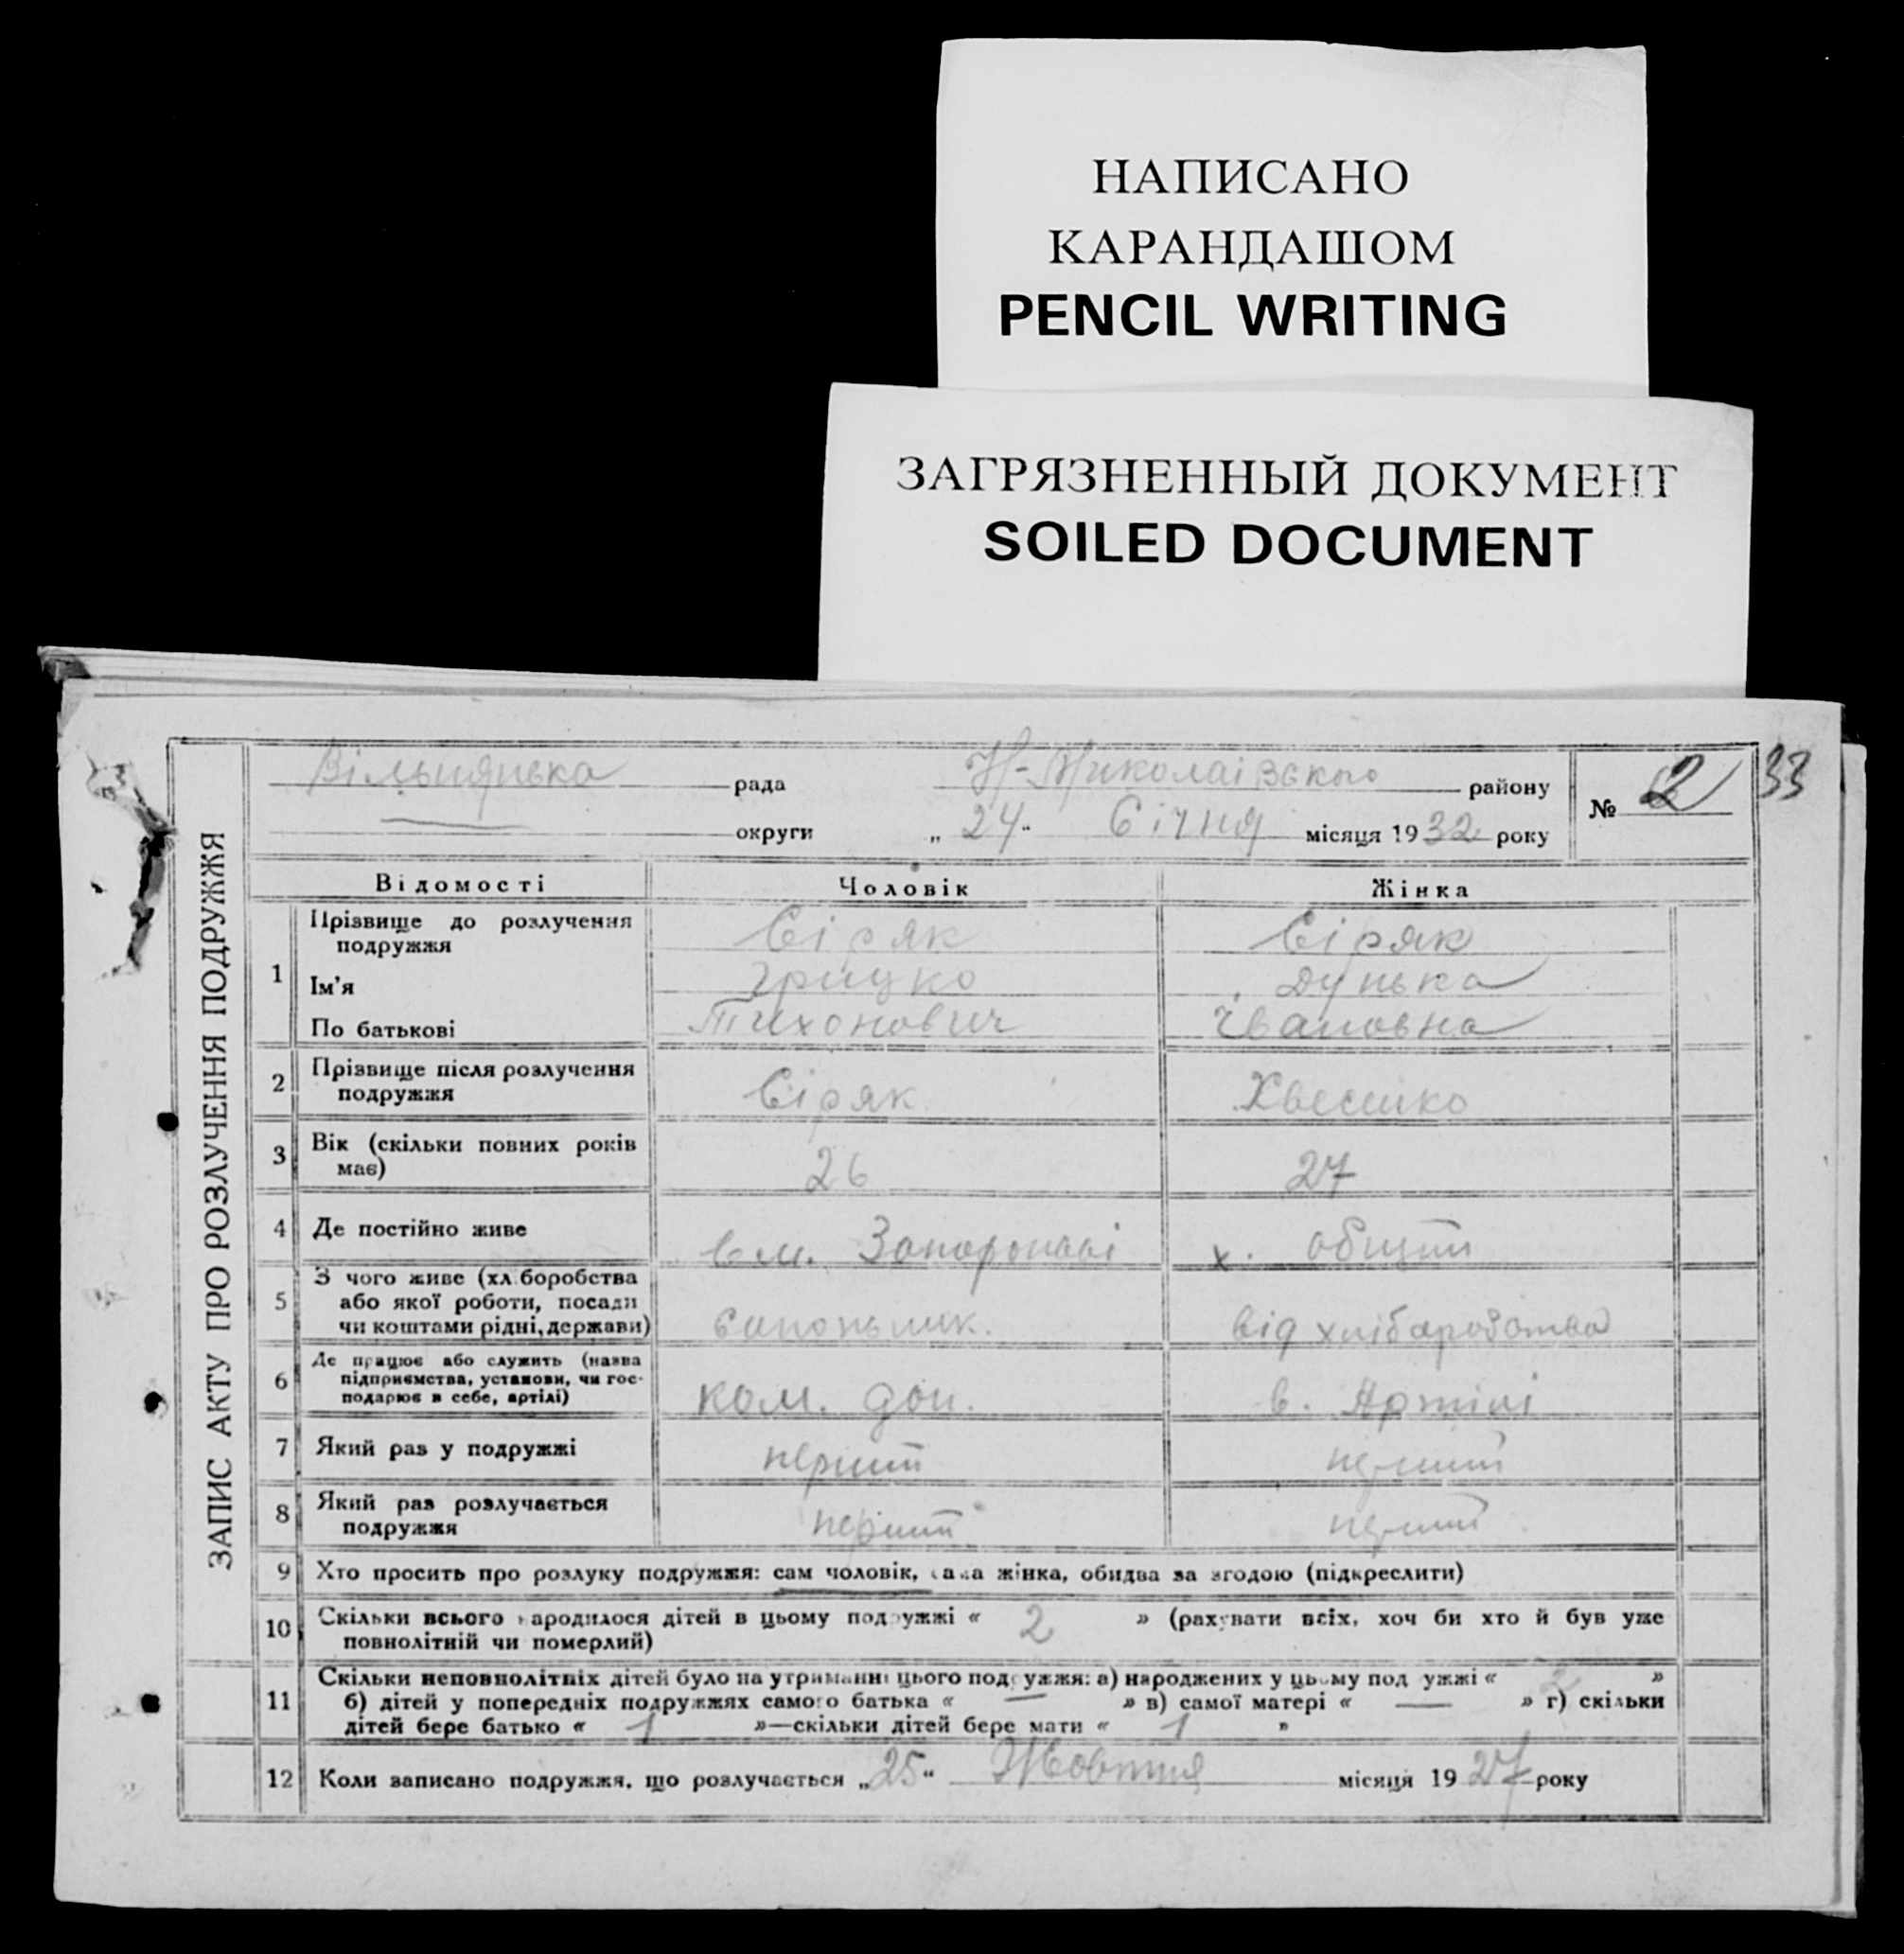 НАПИСАНО
КАРАНДАШОМ
PENCIL WRITING
ЗАГРЯЗНЕННЫЙ ДОКУМЕНТ
SOILED DOCUMENT
ЗАПИС АКТУ ПРО РОЗЛУЧЕННЯ ПОДРУЖЖЯ
Вільнянська рада Н-Миколаівского району № 2 33
округи „ 24 " Січня місяця 1932 року
Відомості Чоловік Жінка
1 Прізвище до розлучення подружжя Сіряк Сіряк
Ім'я Грицко Дунька
По батькові Тихонович Івановна
2 Прізвище після розлучення
подружжя Сіряк
3 Вік (скільки повних років
має) 26 27
4 Де постійно живе в м. х.
5 З чого живе (хл.боробства
або якої роботи, посади
чи коштами рідні, держави) від хлібаробства
6 Де працює або служить (назва
підприємства, установи, чи гос-
подарює в себе, артілі) ком. в. Артілі
7 Який раз у подружжі перший перший
8 Який раз розлучається
подружжя перший перший
9 Хто просить про розлуку подружжя: сам чоловік, сама жінка, обидва за згодою (підкреслити)
10 Скільки всього народилося дітей в цьому подружжі « 2 » (рахувати всіх, хоч би хто й був уже
повнолітній чи померлий)
11 Скільки неповнолітніх дітей було на утриманні цього подружжя: а) народжених у цьому подружжі « »
б) дітей у попередніх подружжях самого батька « — » в) самої матері « — » г) скільки
дітей бере батько « 1 »—скільки дітей бере мати « 1 "
12 Коли записано подружжя, що розлучається „ 25 " Жовтня місяця 1927 року